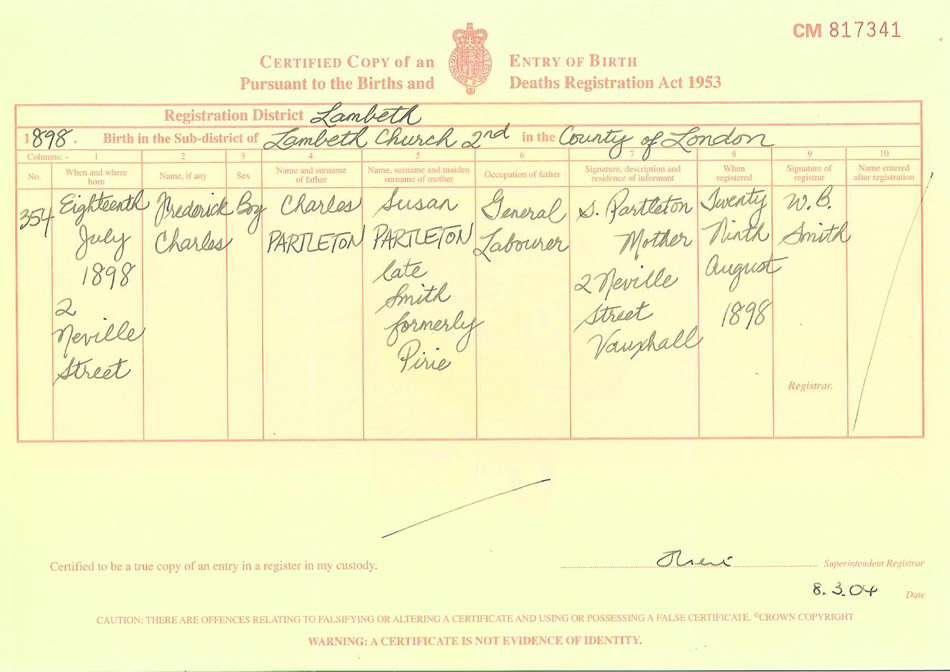 CM 817341
CERTIFIED COPY of an ENTRY OF BIRTH
Pursuant to the Births and Deaths Registration Act 1953
Registration District Lambeth
1898. Birth in the Sub-district of Lambeth Church 2nd in the County of London
Columns: - 1 2 3 4 5 6 7 8 9 10
No. When and where born Name, if any Sex Name and surname of father Name, surname and maiden surname of mother Occupation of father Signature, description and residence of informant When registered Signature of registrar Name entered after registration
354 Eighteenth Frederick Boy Charles Susan General S. Partleton Twenty W.B.
July Charles PARTLETON PARTLETON Labourer Mother Ninth Smith
1898 late 2 Neville August
2 Smith Street 1898
Neville formerly Vauxhall
Street Pirie
Registrar.
Certified to be a true copy of an entry in a register in my custody.
Superintendent Registrar
8.3.04 Date
CAUTION: THERE ARE OFFENCES RELATING TO FALSIFYING OR ALTERING A CERTIFICATE AND USING OR POSSESSING A FALSE CERTIFICATE. ©CROWN COPYRIGHT
WARNING: A CERTIFICATE IS NOT EVIDENCE OF IDENTITY.